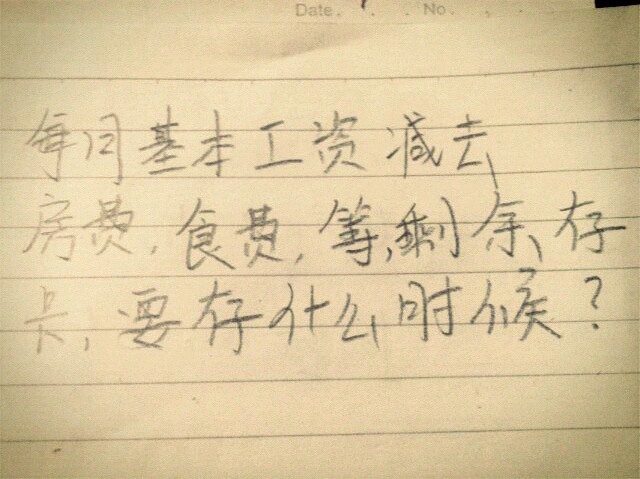 Date. No.
每月基本工资减去
房费,食费,等,剩余存
卡,要存什么时候?